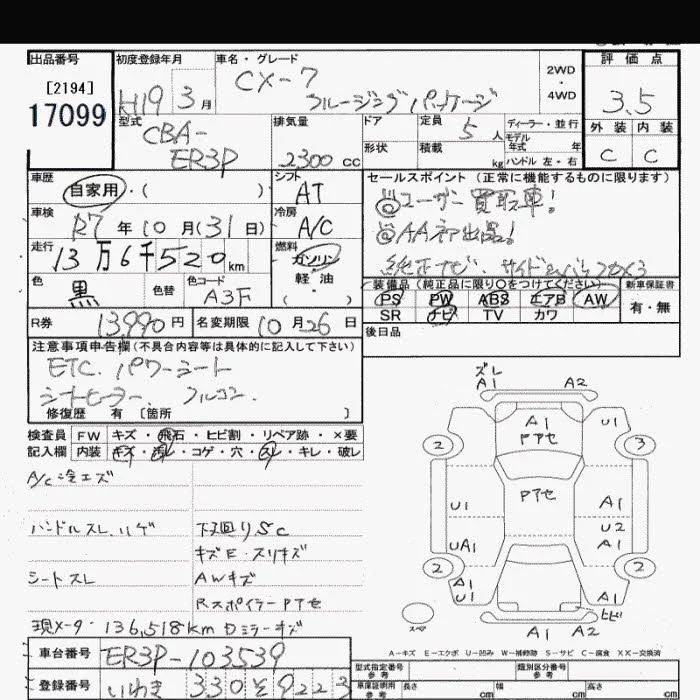 出品番号
[2194]
17099
初度登録年月
H19 3 月
車名・グレード
CX-7
クルージングパッケージ
2WD
・
4WD
評価点
3.5
外装 内装
C C
型式
CBA-
ER3P
排気量
2300 cc
ドア
形状
定員
5 人
積載
kg
ディーラー・並行
モデル
年式 年
ハンドル 左・右
車歴
自家用・( )
シフト
AT
車検
R7 年 10 月(31日)
冷房
A/C
走行
13万6千520km
燃料
ガソリン
軽油
・( )
色
黒
色替
色コード
A3F
R券
13,990 円
名変期限 10 月 26 日
セールスポイント(正常に機能するものに限ります)
◎ユーザー買取車!
◎AA初出品!
純正ナビ、サイド
装備品(純正品に限り○をつけてください)
PS PW ABS エアB AW
SR ナビ TV カワ
新車保証書
有・無
後日品
注意事項申告欄(不具合内容等は具体的に記入して下さい)
ETC. パワーシート
シートヒーター. フルコン.
修復歴 有 [箇所 ]
検査員
記入欄
FW キズ・飛石・ヒビ割・リペア跡・×要
内装 キズ・汚レ・コゲ・穴・スレ・キレ・破レ
A/C冷エズ
ハンドルスレ、ハゲ
シートスレ
下廻りSC
キズE・スリキズ
AWキズ
RスポイラーPアセ
現メータ・136,518km Dミラーキズ
車台番号
ER3P-103539
登録番号
いわき 330 そ 9223
ズレ
A1 A2
A1
Pアセ
U1
2
3
Pアセ
U1
A1
U2
UA1
A1
2
2
A1
U1
A1
ヒビ
A1 A2
スペア
A-キズ E-エクボ U-凹み W-補修跡 S-サビ C-腐食 XX-交換済
型式指定番号
参考
類別区分番号
参考
車庫証明用
参考
長さ
cm
幅
cm
高さ
cm